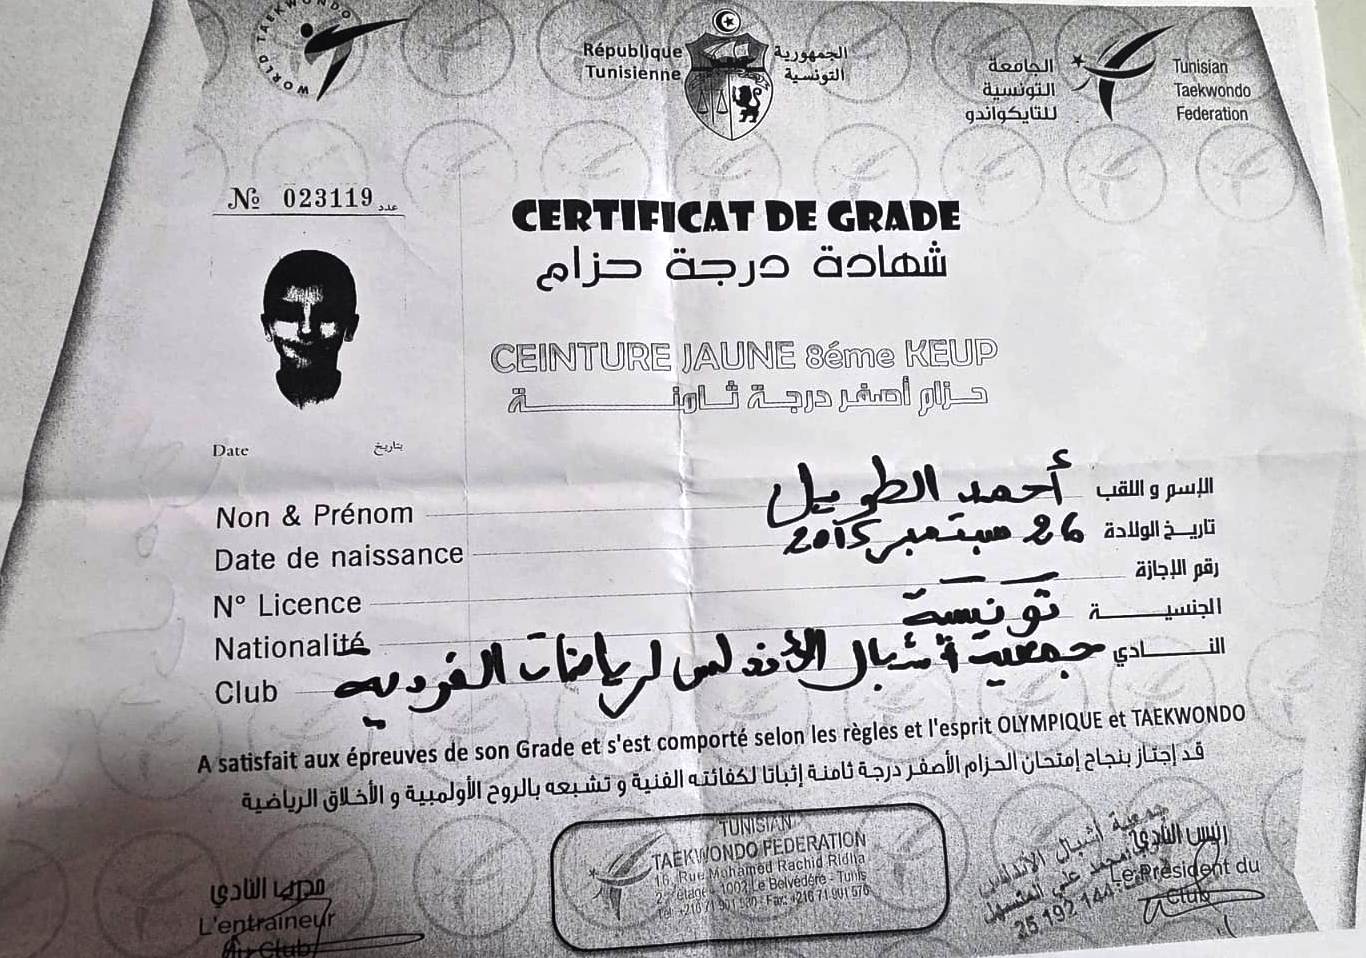 WORLD TAEKWONDO
République
Tunisienne
الجمهورية
التونسية
الجامعة
التونسية
للتايكواندو
Tunisian
Taekwondo
Federation
№ 023119 عدد
CERTIFICAT DE GRADE
شهادة درجة حزام
CEINTURE JAUNE 8éme KEUP
حزام أصفر درجة ثامنة
Date بتاريخ
Non & Prénom أحمد الطويل الإسم و اللقب
Date de naissance 26 سبتمبر 2015 تاريخ الولادة
N° Licence رقم الإجازة
Nationalité تونسية الجنسية
Club جمعية أشبال الأندلس لرياضات الفردية النادي
A satisfait aux épreuves de son Grade et s'est comporté selon les règles et l'esprit OLYMPIQUE et TAEKWONDO
قد إجتاز بنجاح إمتحان الحزام الأصفر درجة ثامنة إثباتا لكفائته الفنية و تشبعه بالروح الأولمبية و الأخلاق الرياضية
مدرب النادي
L'entraineur
du Club
TUNISIAN
TAEKWONDO FEDERATION
16, Rue Mohamed Rachid Ridha
2 étage - 1002 Le Belvédère - Tunis
Fax: +216 71 901 576
جمعية أشبال الأندلس
25 192 144
رئيس النادي
Le Président du
Club